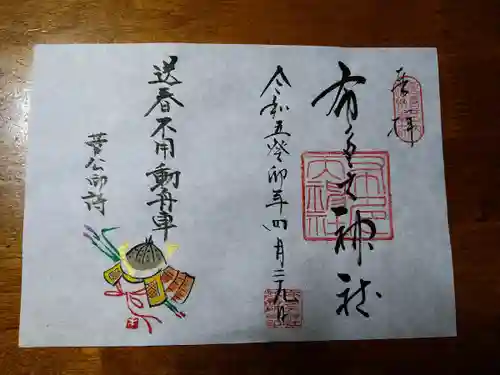 奉拝
布多天神社
令和五癸卯年四月二九日
送春不用動舟車
菅公御詩